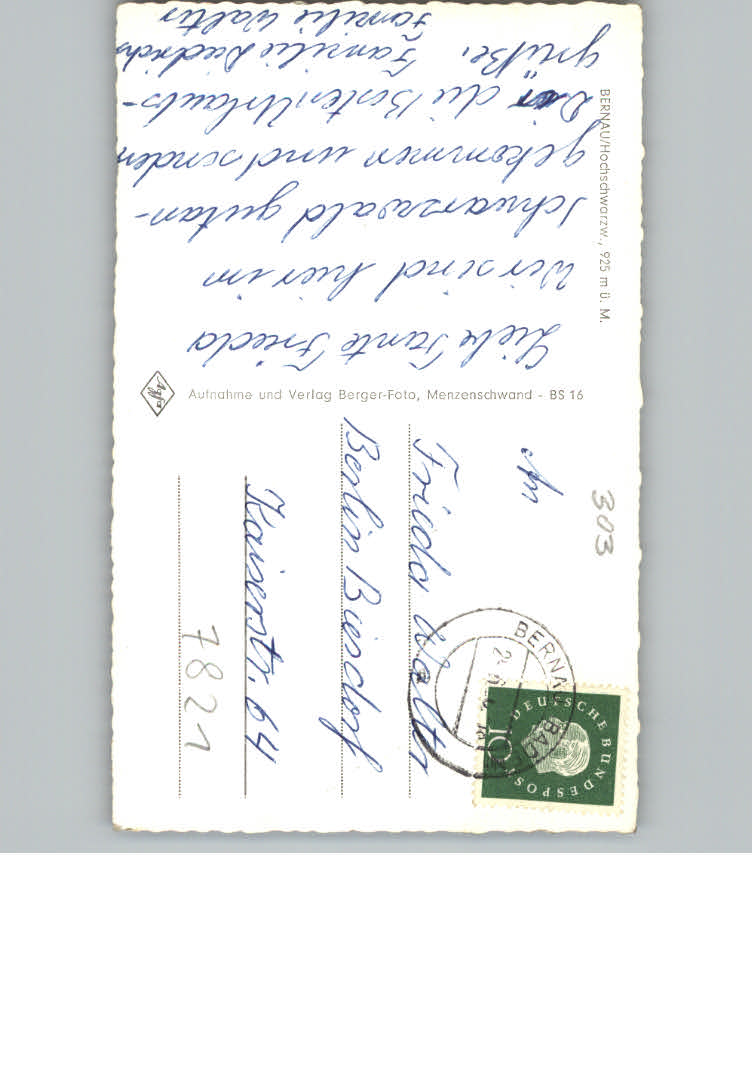 BERNAU/Hochschwarzw., 925 m ü. M.
Liebe Tante Frieda
Wir sind hier im
Schwarzwald gutan-
gekommen und senden
Dir die BestenUrlaubs-
grüße,
Familie Diedrichs
Familie Walter
Aufnahme und Verlag Berger-Foto, Menzenschwand - BS 16
Agfa
303
An
Frieda Walter
Berlin Biesdorf
Kaiserstr. 64
7821
BERNAU
DEUTSCHE BUNDESPOST
10